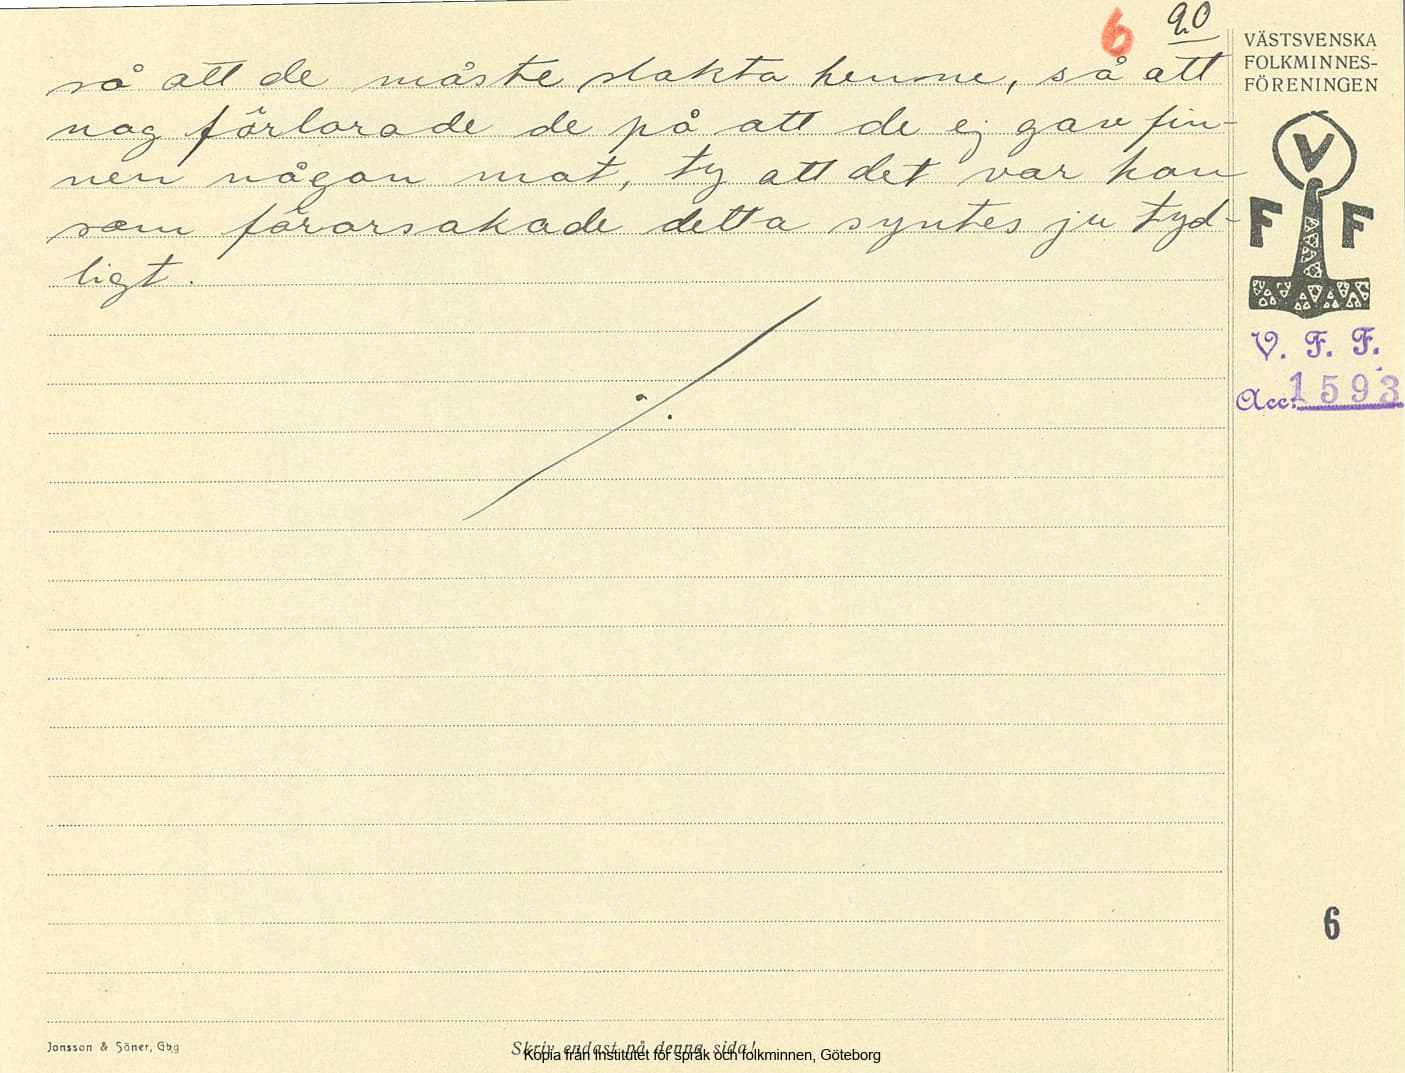 6 20
VÄSTSVENSKA
FOLKMINNES-
FÖRENINGEN
så att de måste slakta henne, så att
nog förlorade de på att de ej gav fin-
nen någon mat, ty att det var han
som förorsakade detta syntes ju tyd-
ligt.
V
F F
V. F. F.
Acc. 1593
6
Jonsson & Söner, Gbg
Skriv endast på denna sida!
Kopia från Institutet för språk och folkminnen, Göteborg